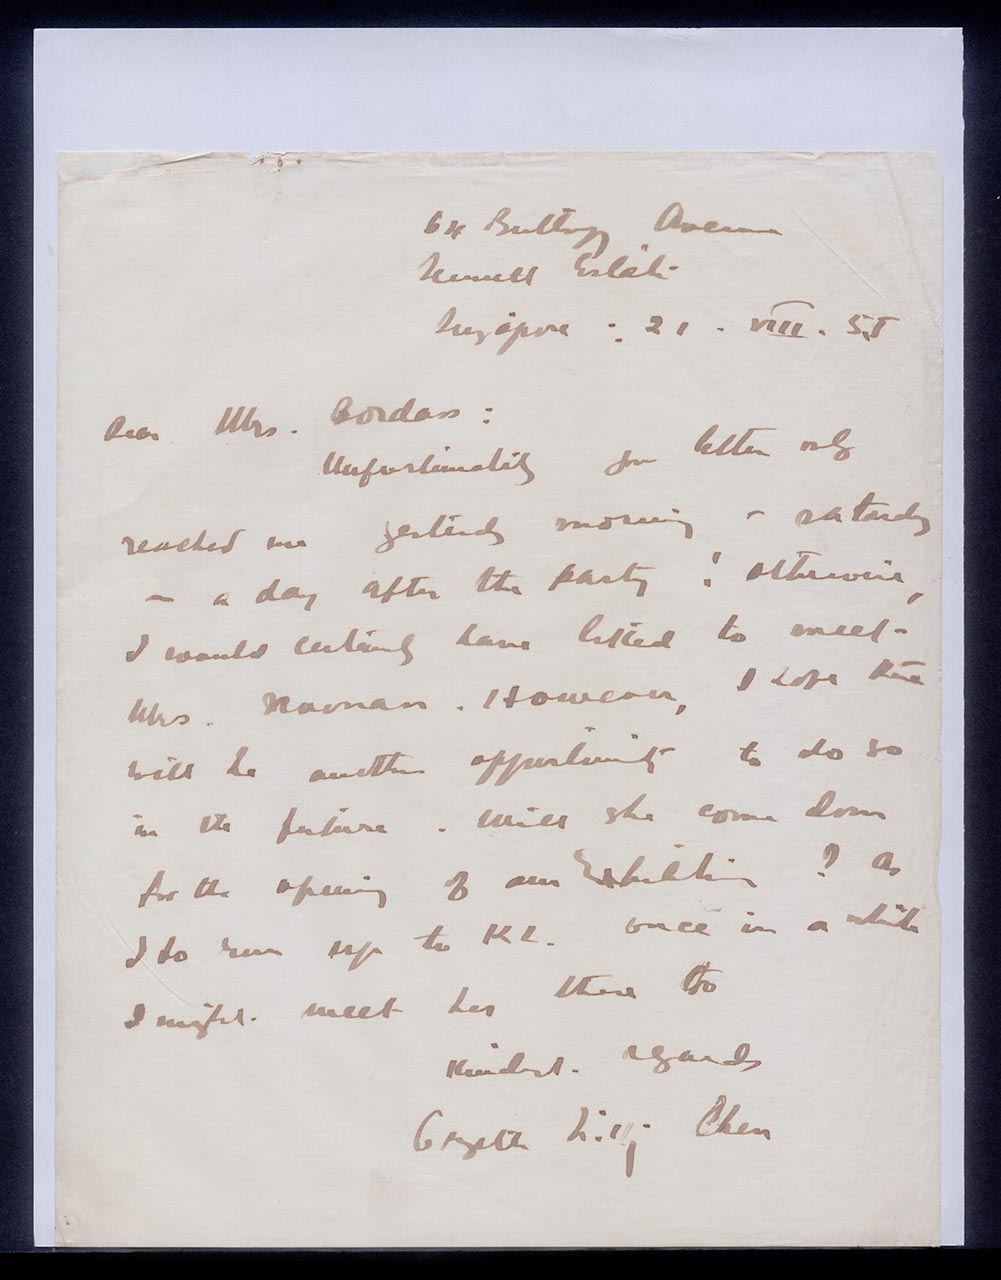 64 Butterfly Avenue
Sennett Estate
Singapore : 21 . VIII . 55
Dear Mrs. Bordass :
Unfortunately your letter only
reached me yesterday morning – saturday
– a day after the party ! otherwise,
I would certainly have liked to meet
Mrs. . However, I hope there
will be another opportunity to do so
in the future . Will she come down
for the opening of our Exhibition ? As
I do run up to KL. once in a while
I might meet her there too
Kindest regards
Chen